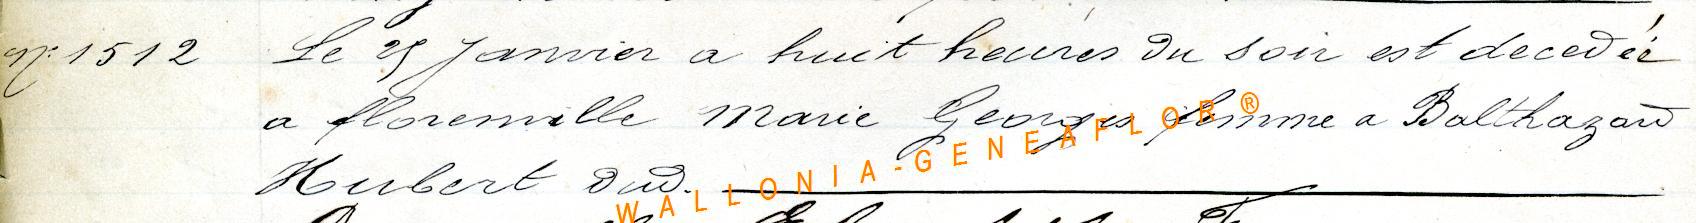 N: 1512 Le 25 Janvier a huit heures du soir est decedéé
a florenville Marie Georges femme a Balthazard
Hubert dud.
WALLONIA-GENEAFLOR®